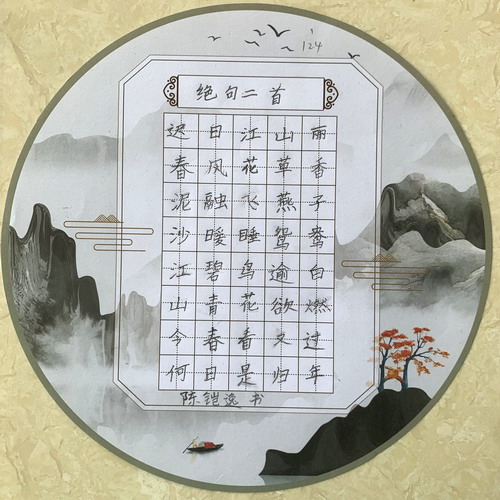 124
绝句二首
迟日江山丽
春风花草香
泥融飞燕子
沙暖睡鸳鸯
江碧鸟逾白
山青花欲燃
今春看又过
何日是归年
陈铠逸 书